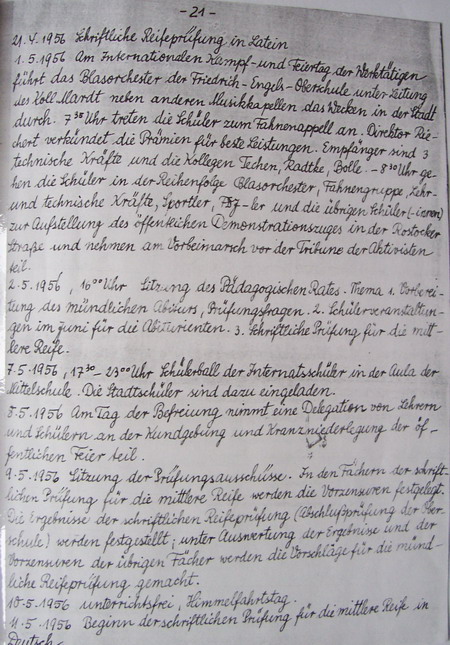 - 21 -
21.4.1956 Schriftliche Reifeprüfung in Latein
1.5.1956 Am Internationalen Kampf- und Feiertag der Werktätigen
führt das Blasorchester der Friedrich-Engels-Oberschule unter Leitung
des Koll. Mardt neben anderen Musikkapellen das Wecken in der Stadt
durch. 7³⁰ Uhr treten die Schüler zum Fahnenappell an. Direktor Rie-
chert verkündet die Prämien für beste Leistungen. Empfänger sind 3
technische Kräfte und die Kollegen Techen, Radtke, Bolle. - 8³⁰ Uhr ge-
hen die Schüler in der Reihenfolge Blasorchester, Fahnengruppe, Lehr-
und technische Kräfte, Sportler, und die übrigen Schüler (-innen)
zur Aufstellung des öffentlichen Demonstrationszuges in der Rostocker
Straße und nehmen am Vorbeimarsch vor der Tribüne der Aktivisten
teil.
2.5.1956, 16⁰⁰ Uhr Sitzung des Pädagogischen Rates. Thema 1. Vorberei-
tung des mündlichen Abiturs, Prüfungsfragen. 2. Schülerveranstaltun-
gen im Juni für die Abiturienten. 3. Schriftliche Prüfung für die mitt-
lere Reife.
7.5.1956, 17³⁰ - 23⁰⁰ Uhr Schülerball der Internatsschüler in der Aula der
Mittelschule. Die Stadtschüler sind dazu eingeladen.
8.5.1956 Am Tag der Befreiung nimmt eine Delegation von Lehrern
und Schülern an der Kundgebung und Kranzniederlegung der öf-
fentlichen Feier teil.
9.5.1956 Sitzung der Prüfungsausschüsse. In den Fächern der schrift-
lichen Prüfung für die mittlere Reife werden die Vorzensuren festgelegt.
Die Ergebnisse der schriftlichen Reifeprüfung (Abschlußprüfung der Ober-
schule) werden festgestellt; unter Auswertung der Ergebnisse und der
Vorzensuren der übrigen Fächer werden die Vorschläge für die münd-
liche Reifeprüfung gemacht.
10.5.1956 unterrichtsfrei, Himmelfahrtstag.
11.5.1956 Beginn der schriftlichen Prüfung für die mittlere Reife in
Deutsch.